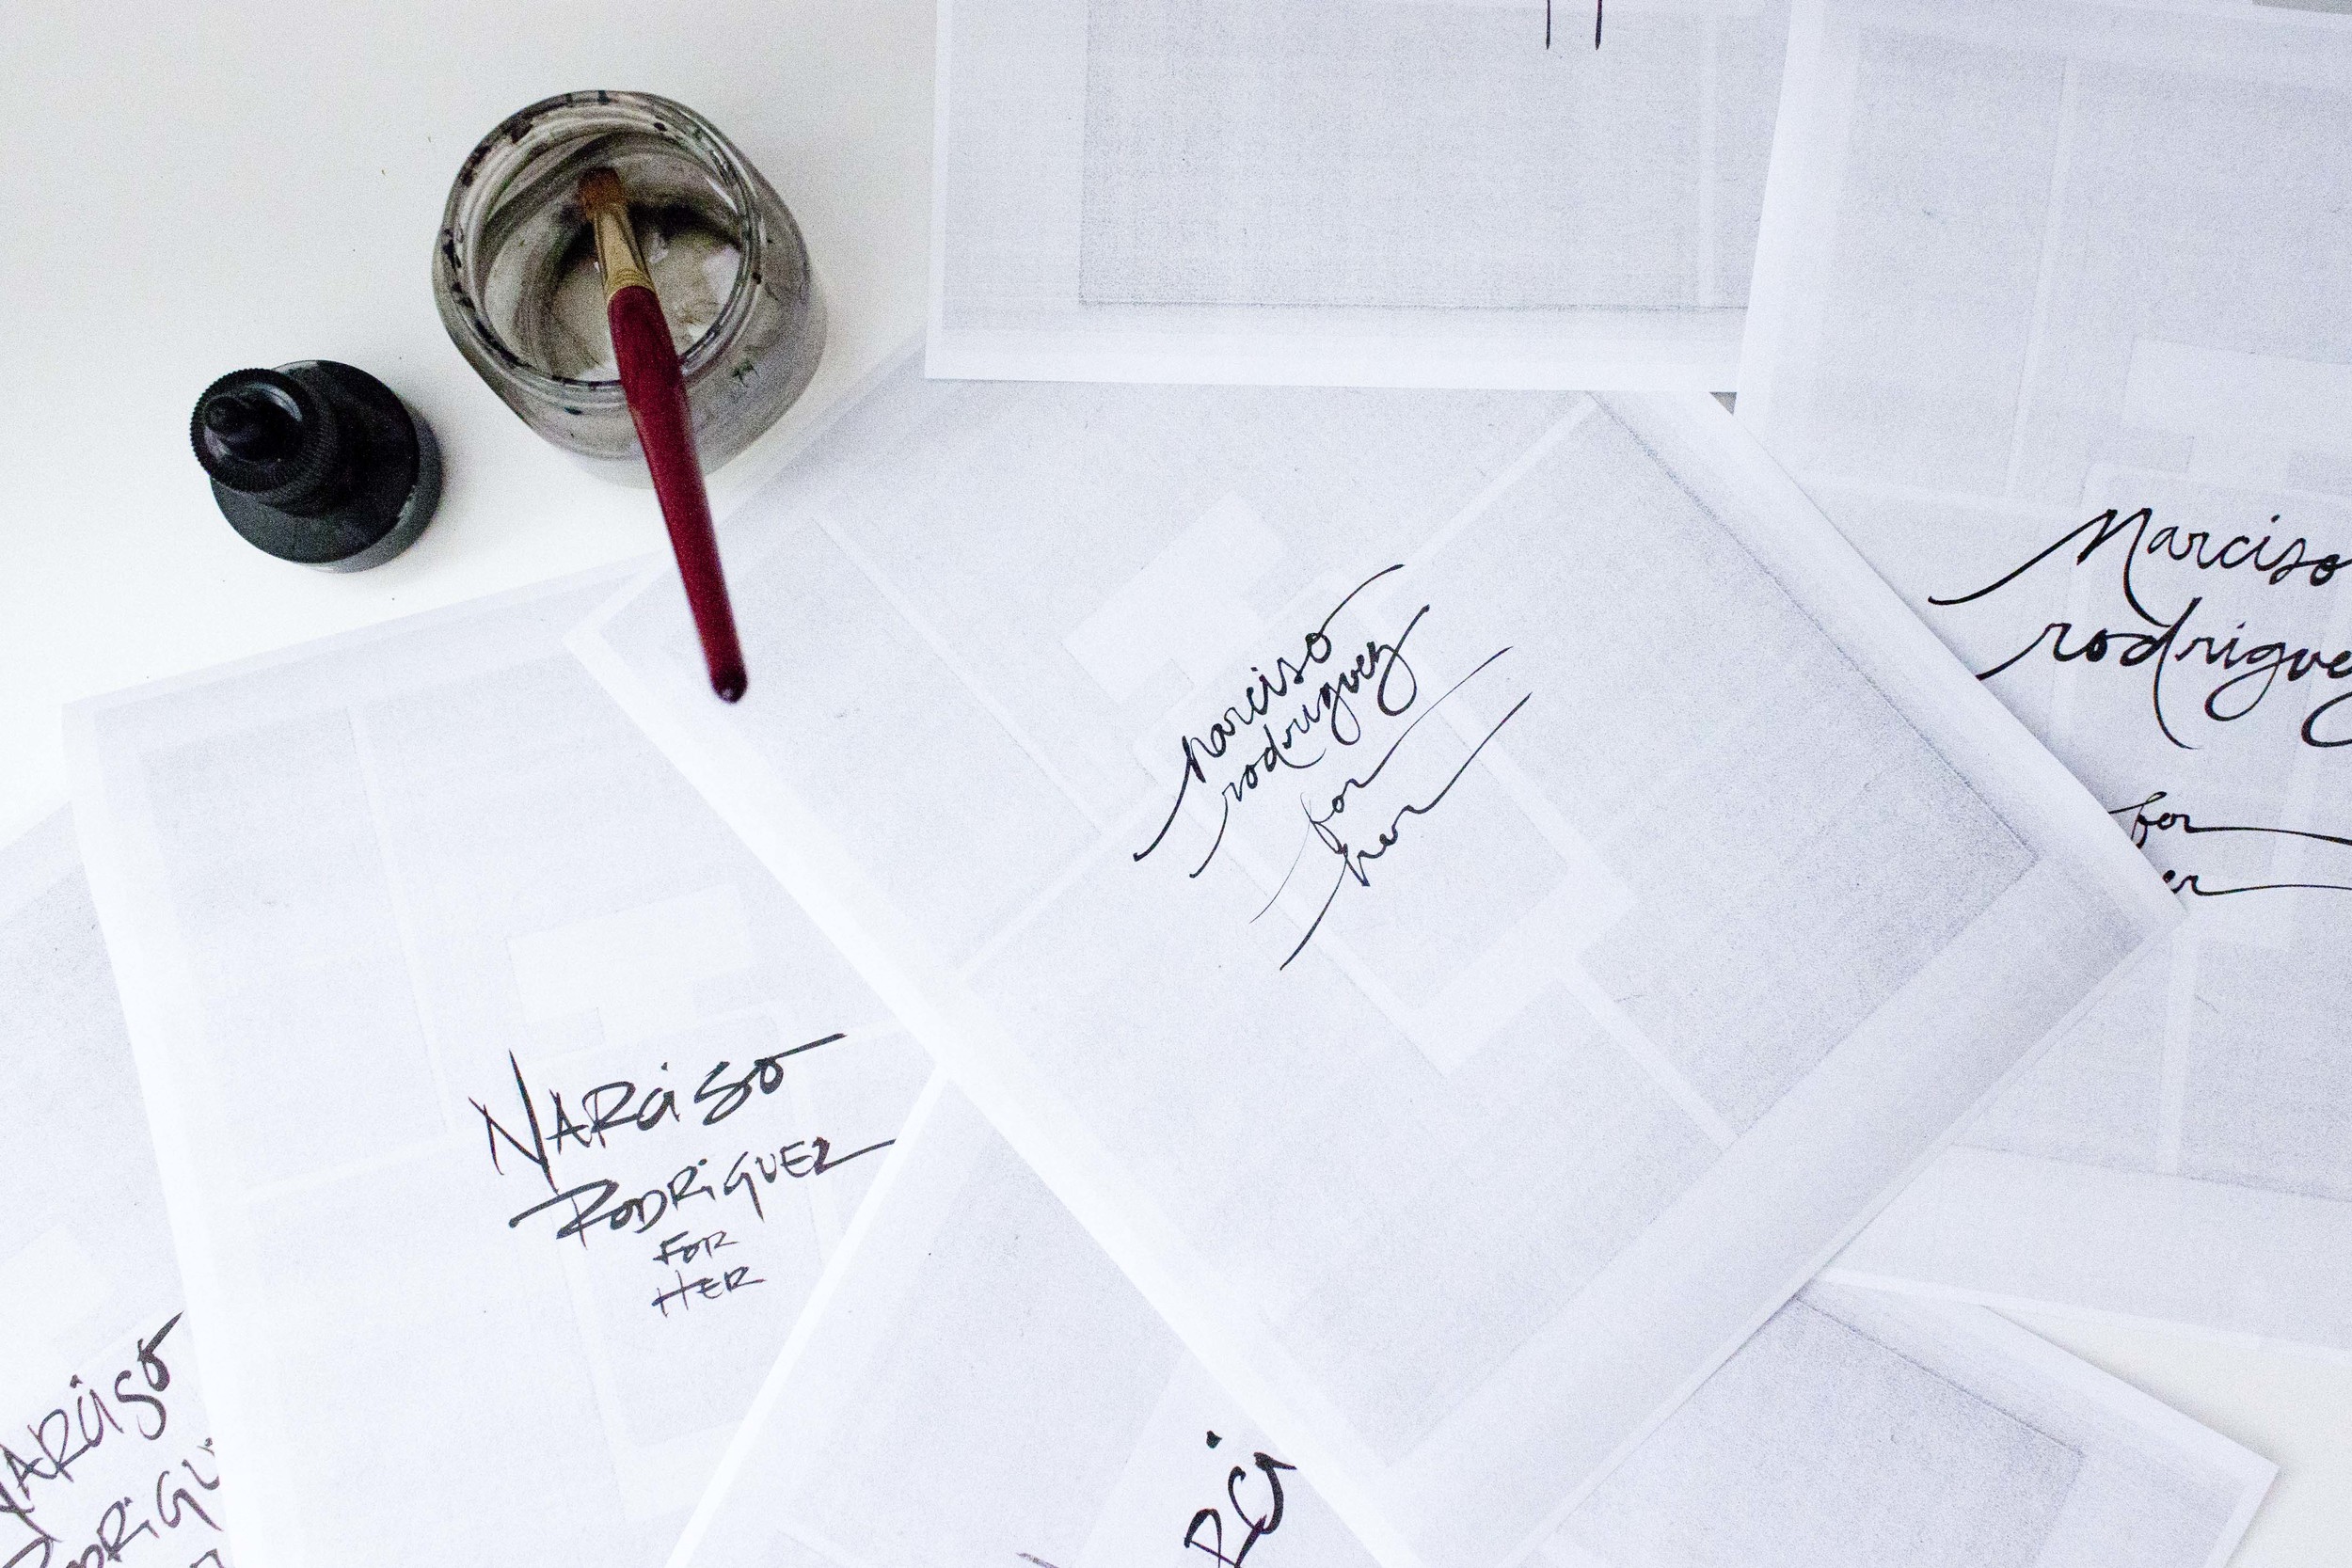 Narciso
rodrigue
for
er
narciso
rodriguez
for
her
NARCISO
RODRIGUEZ
FOR
HER
ARCISO
ODRIGU
RCI